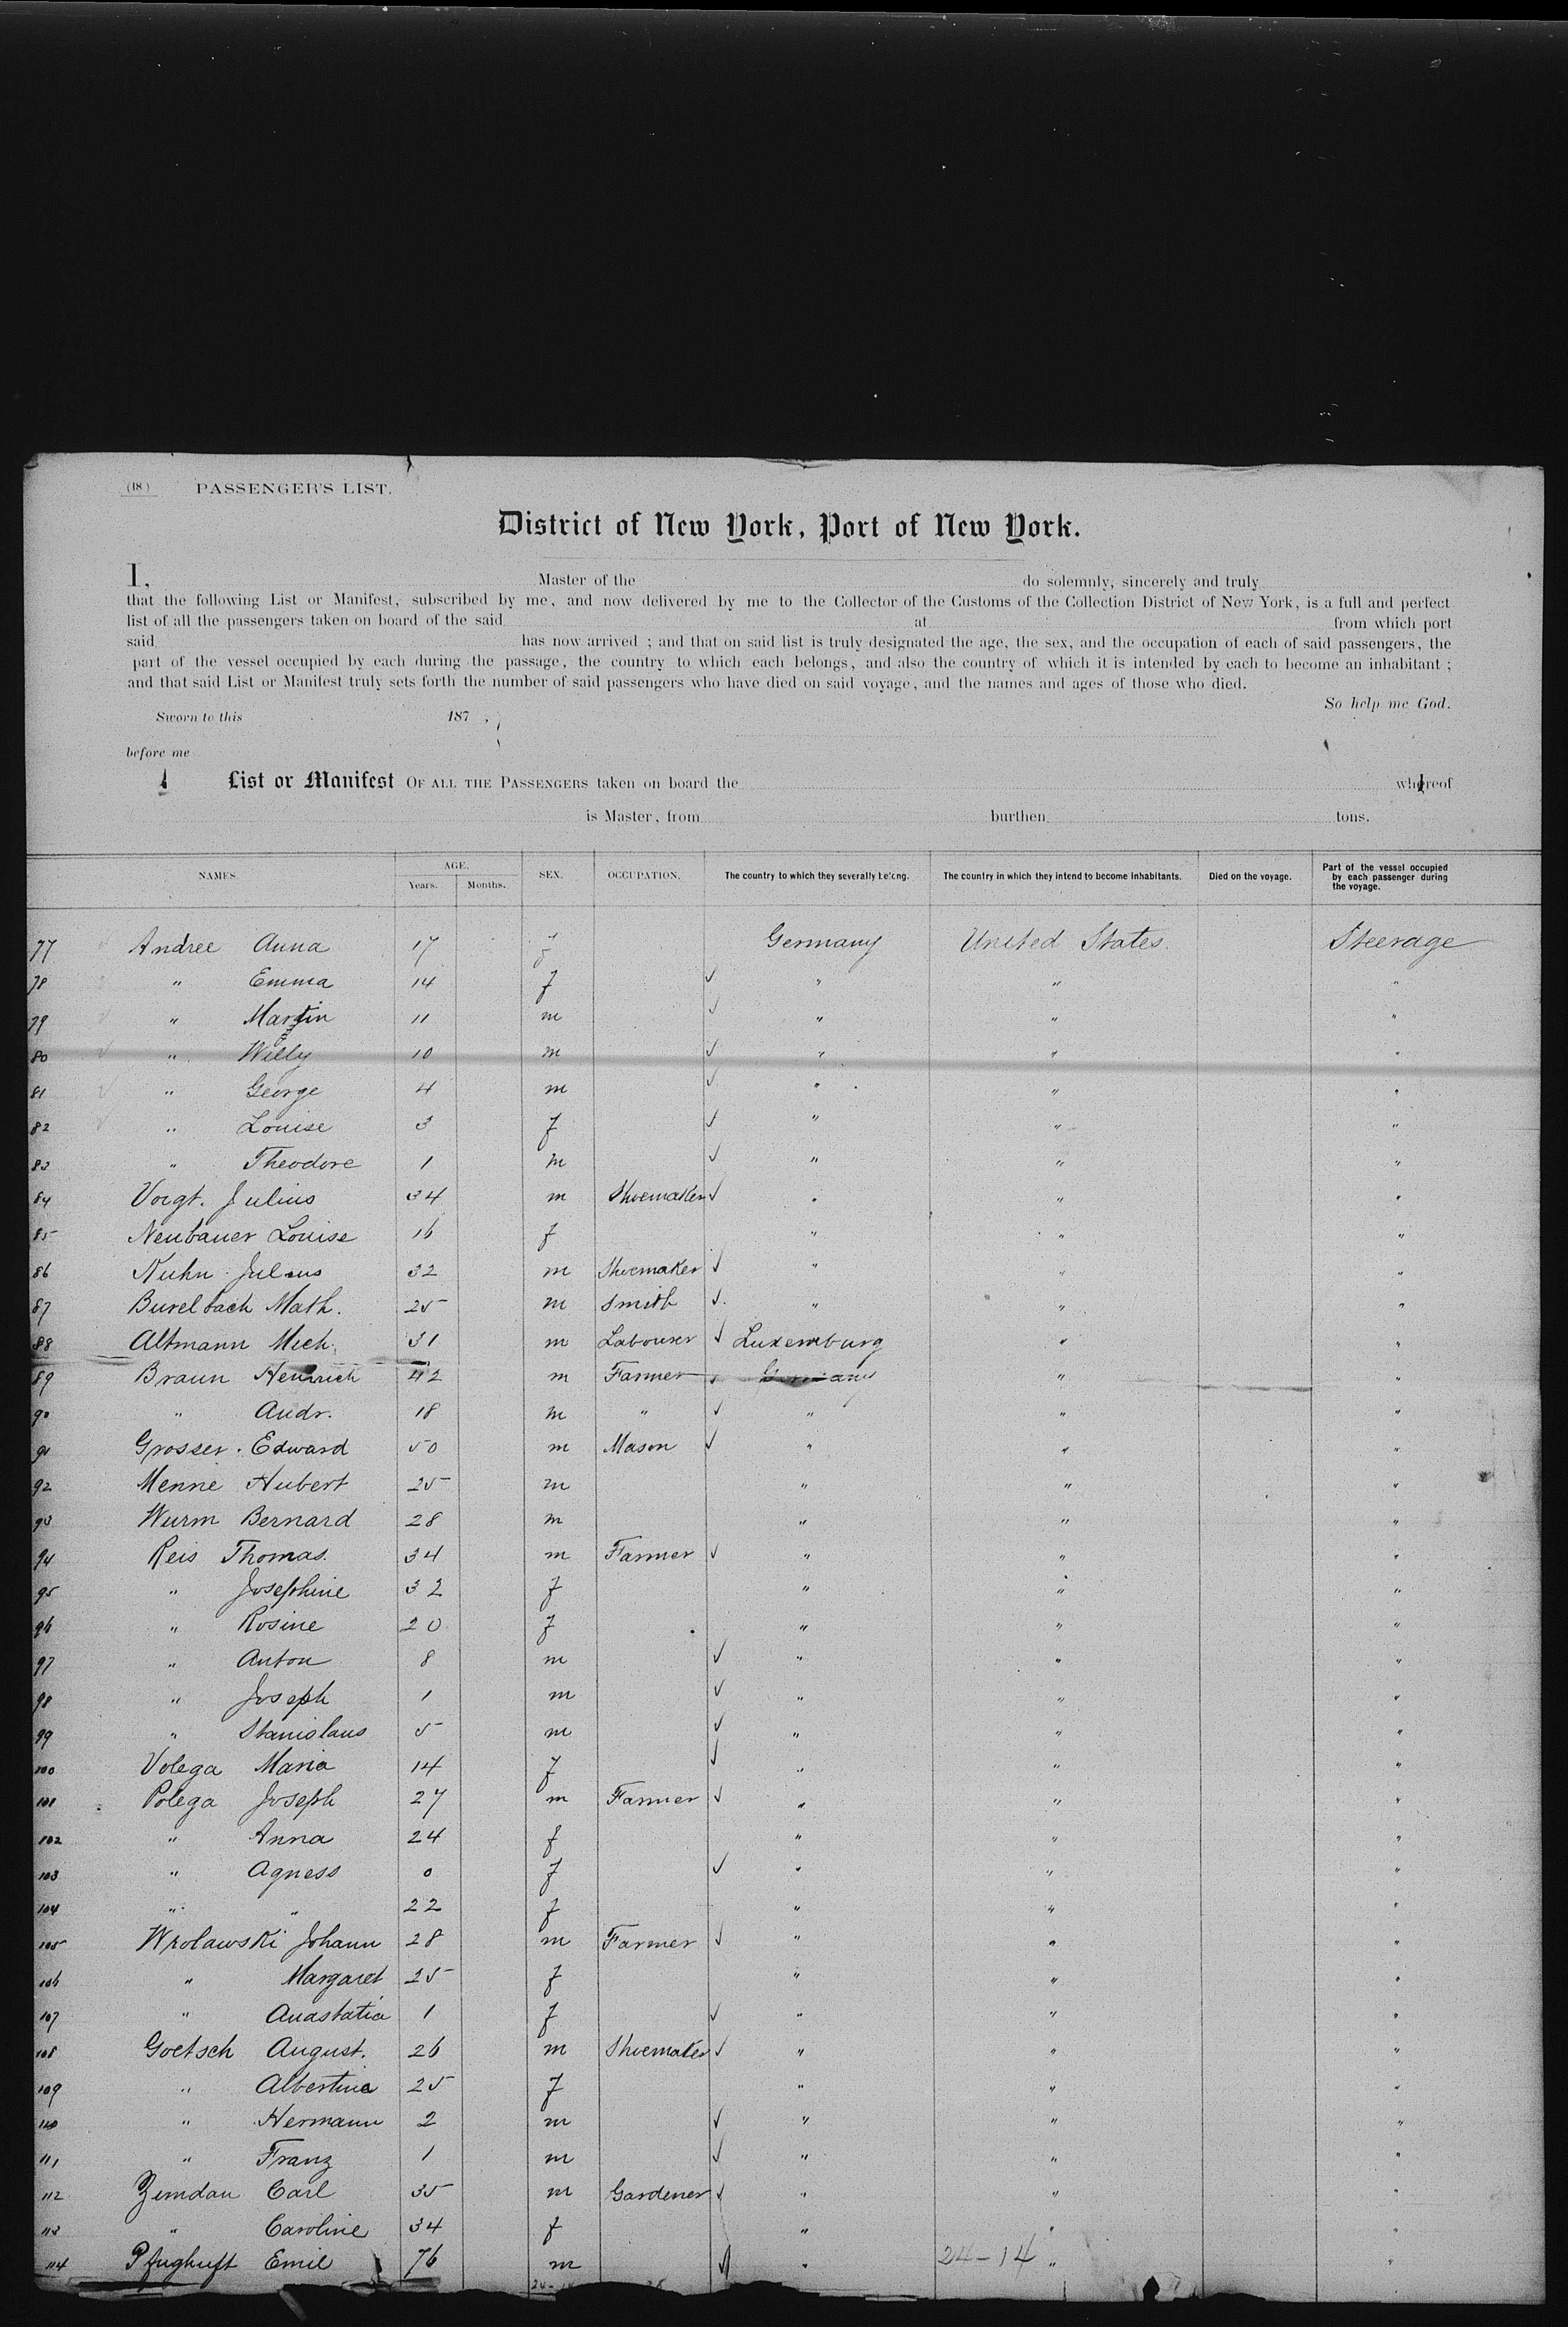 (18) PASSENGER'S LIST.
District of New York, Port of New York.
I, Master of the do solemnly, sincerely and truly
that the following List or Manifest, subscribed by me, and now delivered by me to the Collector of the Customs of the Collection District of New York, is a full and perfect
list of all the passengers taken on board of the said at from which port
said has now arrived ; and that on said list is truly designated the age, the sex, and the occupation of each of said passengers, the
part of the vessel occupied by each during the passage, the country to which each belongs, and also the country of which it is intended by each to become an inhabitant ;
and that said List or Manifest truly sets forth the number of said passengers who have died on said voyage, and the names and ages of those who died.
So help me God.
Sworn to this 187 ,
before me
List or Manifest OF ALL THE PASSENGERS taken on board the whereof
is Master, from burthen tons.
NAMES. AGE. Years. Months. SEX. OCCUPATION. The country to which they severally belong. The country in which they intend to become inhabitants. Died on the voyage. Part of the vessel occupied by each passenger during the voyage.
77 Andree Anna 17 Germany United States. Steerage
78 " Emma 14 f ✓ " " "
79 " Martin 11 m ✓ " " "
80 " Willy 10 m ✓ " " "
81 " George 4 m ✓ " " "
82 " Louise 3 f ✓ " " "
83 " Theodore 1 m ✓ " " "
84 Voigt. Julius 34 m Shoemaker ✓ " " "
85 Neubauer Louise 16 f " " "
86 Kuhn Julius 32 m Shoemaker ✓ " " "
87 Burelbach Math. 25 m Smith ✓ " " "
88 Altmann Mich. 31 m Labourer ✓ Luxemburg " "
89 Braun Heinrich 42 m Farmer ✓ Germany " "
90 " Andr. 18 m " ✓ " " "
91 Grosser. Edward 50 m Mason ✓ " " "
92 Menne Hubert 25 m " " "
93 Wurm Bernard 28 m " " "
94 Reis Thomas. 34 m Farmer ✓ " " "
95 " Josephine 32 f " " "
96 " Rosine 20 f " " "
97 " Anton 8 m ✓ " " "
98 " Joseph 1 m ✓ " " "
99 " Stanislaus 5 m ✓ " " "
100 Volega Maria 14 f ✓ " " "
101 Polega Joseph 27 m Farmer ✓ " " "
102 " Anna 24 f " " "
103 " Agness 0 f ✓ " " "
104 " " 22 f " " "
105 Wrolawski Johann 28 m Farmer ✓ " " "
106 " Margaret 25 f " " "
107 " Anastatia 1 f ✓ " " "
108 Goetsch August. 26 m Shoemaker ✓ " " "
109 " Albertina 25 f " " "
110 " Hermann 2 m ✓ " " "
111 " Franz 1 m ✓ " " "
112 Zemdau Carl 35 m Gardener ✓ " " "
113 " Caroline 34 f " " "
114 Pflughuft Emil 76 m ✓ " 24-14 " "